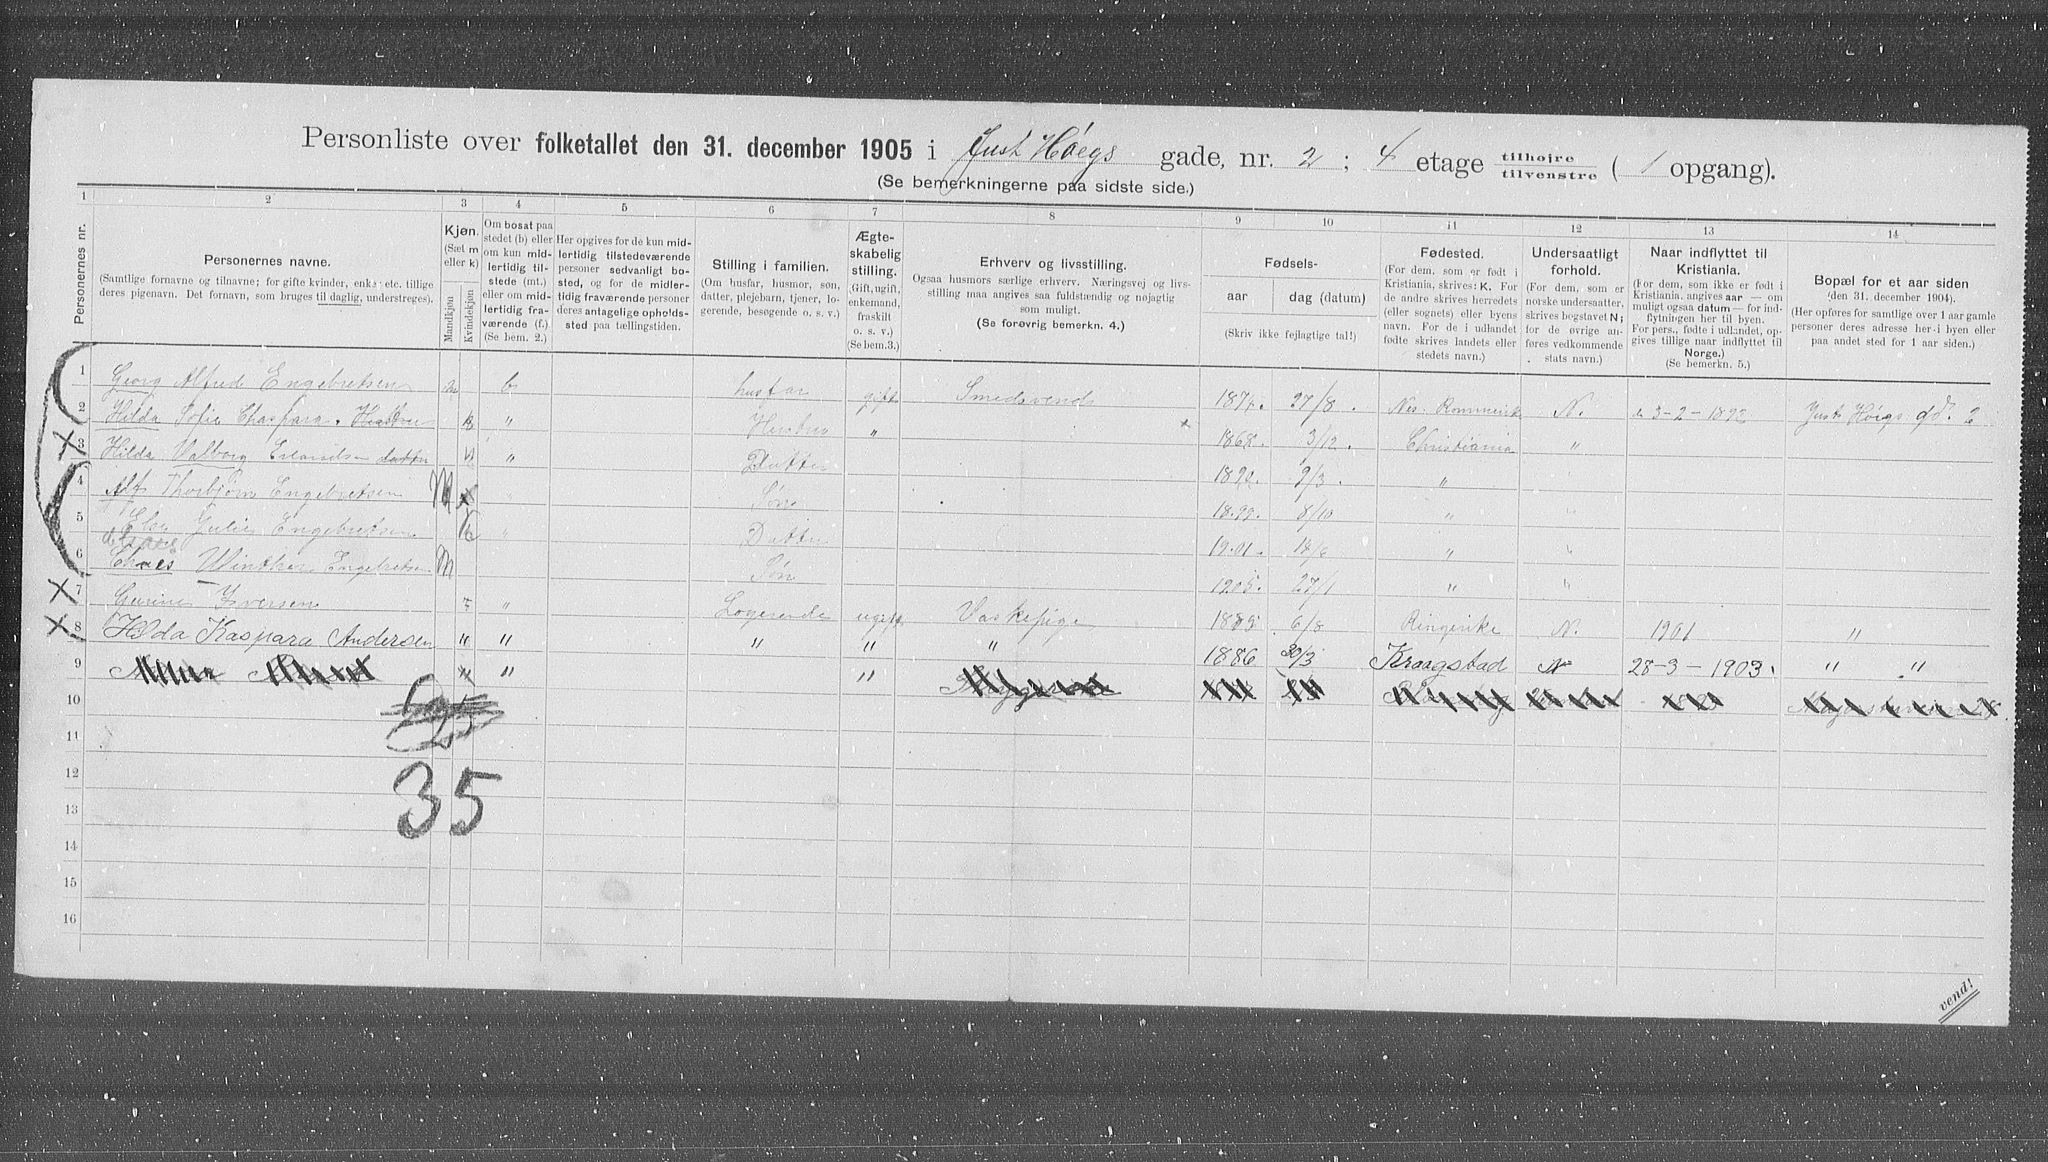 Personliste over folketallet den 31. december 1905 i Just Høegs gade, nr. 2 ; 4 etage tilhøjre tilvenstre ( 1 opgang).
(Se bemerkningerne paa sidste side.)
1 2 3 4 5 6 7 8 9 10 11 12 13 14
Personernes nr.
Personernes navne.
(Samtlige fornavne og tilnavne; for gifte kvinder, enker etc. tillige
deres pigenavn. Det fornavn, som bruges til daglig, understreges).
Kjøn.
(Sæt m
eller k)
Mandkjøn
Kvindekjøn
Om bosat paa
stedet (b) eller
om kun mid-
lertidig til-
stede (mt.)
eller om mid-
lertidig fra-
værende (f.)
(Se bem. 2.)
Her opgives for de kun mid-
lertidig tilstedeværende
personer sedvanligt bo-
sted, og for de midler-
tidig fraværende personer
deres antagelige opholds-
sted paa tællingstiden.
Stilling i familien.
(Om husfar, husmor, søn,
datter, plejebarn, tjener, lo-
gerende, besøgende o. s. v.)
Ægte-
skabelig
stilling.
(Gift, ugift,
enkemand,
fraskilt
o. s. v.)
(Se bem.3.)
Erhverv og livsstilling.
Ogsaa husmors særlige erhverv. Næringsvej og livs-
stilling maa angives saa fuldstændig og nøjagtig
som muligt.
(Se forøvrig bemerkn. 4.)
Fødsels-
aar
dag (datum)
(Skriv ikke fejlagtige tal!)
Fødested.
(For dem, som er født i
Kristiania, skrives: K. For
de andre skrives herredets
(eller sognets) eller byens
navn. For de i udlandet
fødte skrives landets eller
stedets navn.)
Undersaatligt
forhold.
(For dem, som er
norske undersaatter,
skrives bogstavet N;
for de øvrige an-
føres vedkommende
stats navn.)
Naar indflyttet til
Kristiania.
(For dem, som ikke er født i
Kristiania, angives aar — om
muligt ogsaa datum — for ind-
flytningen her til byen.
For pers., fødte i udlandet, op-
gives tillige naar indflyttet til
Norge.)
(Se bemerkn. 5.)
Bopæl for et aar siden
(den 31. december 1904).
(Her opføres for samtlige over 1 aar gamle
personer deres adresse her i byen eller
paa andet sted for 1 aar siden.)
1 Georg Alfred Engebretsen m b husfar gift Smedsvend 1874. 27/8. Nes Romerike N. 3-2-1892 Just Høigs gd. 2
2 Hilda Sofie Chaspara k " Hustru " 1868. 3/12. Christiania "
3 Hilda Valborg k " Datter 1892. 9/3. "
4 Alf Thorbjørn Engebretsen M " Søn 1899. 8/10 " "
5 Else Julie Engebretsen K " Datter 1901. 14/6 " "
6 Winther Engebretsen M Søn 1905. 27/1 " "
7 Gurine Iversen " Logerende ugift Vaskepige 6/8 Ringerike N. 1901 "
8 Hilda Kaspara Andersen " " " " " 1886 30/3 Kraagstad N 28-3-1903. " "
9 " "
10
35
11
12
13
14
15
16
vend!